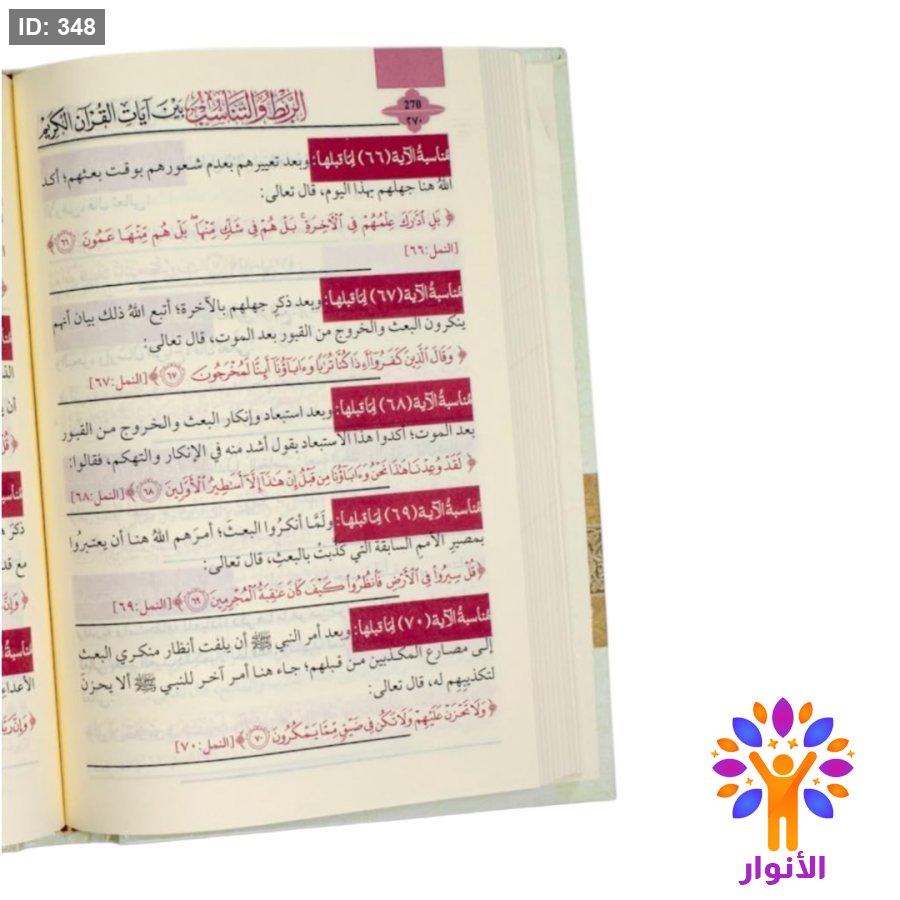 ID: 348
270
٢٧٠
الربط والتناسب بين آيات القرآن الكريم
مناسبة الآية (٦٦) لما قبلها: وبعد تعييرهم بعدم شعورهم بوقت بعثهم؛ أكد
الله هنا جهلهم بهذا اليوم، قال تعالى:
﴿ بَلِ ٱدَّٰرَكَ عِلْمُهُمْ فِي ٱلْآخِرَةِ ۚ بَلْ هُمْ فِي شَكٍّ مِّنْهَا ۖ بَلْ هُم مِّنْهَا عَمُونَ ٦٦ ﴾
[النمل:٦٦]
مناسبة الآية (٦٧) لما قبلها: وبعد ذكر جهلهم بالآخرة؛ أتبع اللهُ ذلك بيان أنهم
ينكرون البعث والخروج من القبور بعد الموت، قال تعالى:
﴿ وَقَالَ ٱلَّذِينَ كَفَرُوٓا۟ أَءِذَا كُنَّا تُرَٰبًا وَءَابَآؤُنَآ أَئِنَّا لَمُخْرَجُونَ ٦٧ ﴾ [النمل:٦٧]
مناسبة الآية (٦٨) لما قبلها: وبعد استبعاد وإنكار البعث والخروج من القبور
بعد الموت؛ أكدوا هذا الاستبعاد بقول أشد منه في الإنكار والتهكم، فقالوا:
﴿ لَقَدْ وُعِدْنَا هَٰذَا نَحْنُ وَءَابَآؤُنَا مِن قَبْلُ إِنْ هَٰذَآ إِلَّآ أَسَٰطِيرُ ٱلْأَوَّلِينَ ٦٨ ﴾ [النمل:٦٨]
مناسبة الآية (٦٩) لما قبلها: ولَمَّا أنكرُوا البعثَ؛ أمرَهم اللهُ هنا أن يعتبرُوا
بمصيرِ الأممِ السابقة التي كذَّبتْ بالبعثِ، قال تعالى:
﴿ قُلْ سِيرُوا۟ فِي ٱلْأَرْضِ فَٱنظُرُوا۟ كَيْفَ كَانَ عَٰقِبَةُ ٱلْمُجْرِمِينَ ٦٩ ﴾ [النمل:٦٩]
مناسبة الآية (٧٠) لما قبلها: وبعد أمر النبي ﷺ أن يلفت أنظار منكري البعث
إلى مصارع المكذبين من قبلهم؛ جاء هنا أمر آخر للنبي ﷺ ألا يحزنَ
لتكذيبِهِم له، قال تعالى:
﴿ وَلَا تَحْزَنْ عَلَيْهِمْ وَلَا تَكُن فِي ضَيْقٍ مِّمَّا يَمْكُرُونَ ٧٠ ﴾ [النمل:٧٠]
الأنوار